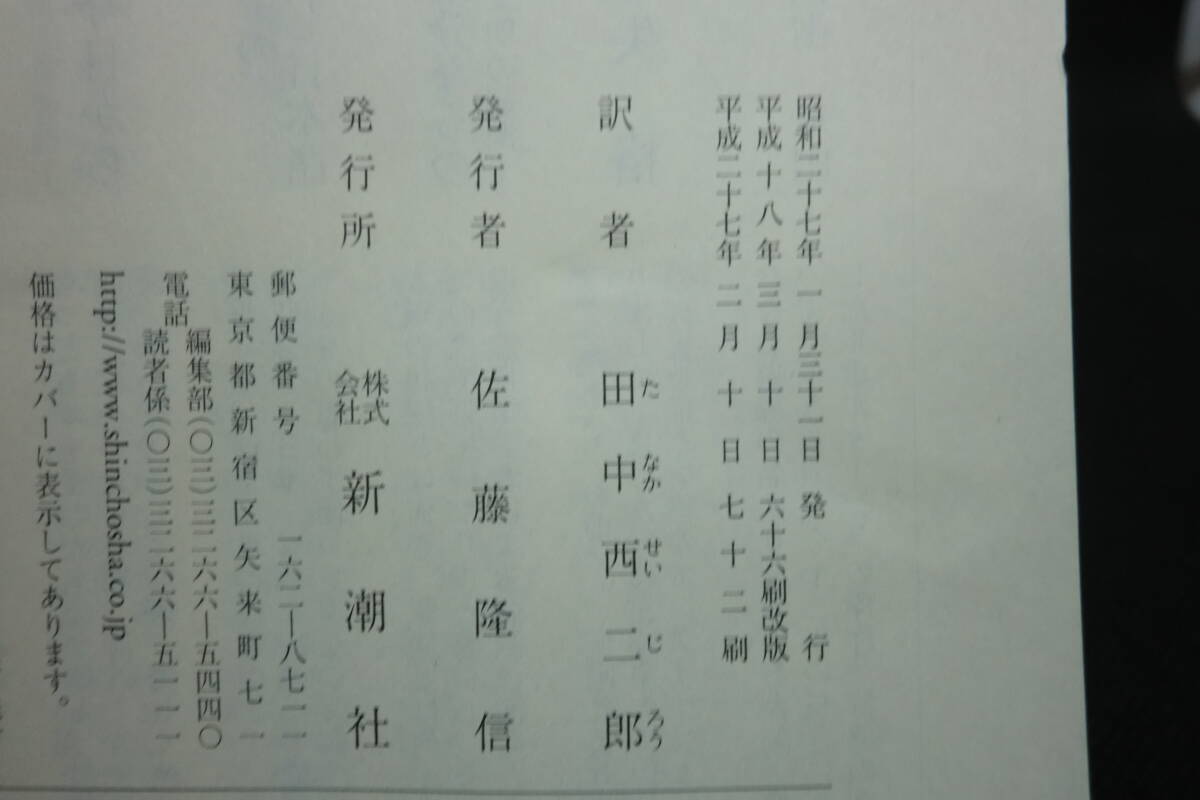 昭和二十七年一月三十一日発行
平成十八年三月十日六十六刷改版
平成二十七年二月十日七十二刷
訳者 田中西二郎
たなかせいじろう
発行者 佐藤隆信
発行所 株式会社 新潮社
郵便番号 一六二―八七一一
東京都新宿区矢来町七一
電話 編集部(〇三)三二六六―五四四〇
読者係(〇三)三二六六―五一一一
http://www.shinchosha.co.jp
価格はカバーに表示してあります。